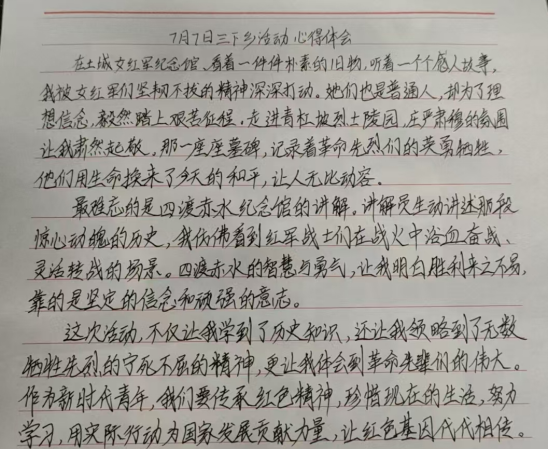 7月7日三下乡活动心得体会
在土城女红军纪念馆、看着一件件朴素的旧物,听着一个个感人故事,
我被女红军们坚韧不拔的精神深深打动。她们也是普通人,却为了理
想信念,毅然踏上艰苦征程。走进青杠坡烈士陵园,庄严肃穆的氛围
让我肃然起敬。那一座座墓碑,记录着革命先烈们的英勇牺牲,
他们用生命换来了今天的和平,让人无比动容。
最难忘的是四渡赤水纪念馆的讲解。讲解员生动讲述那段
惊心动魄的历史,我仿佛看到红军战士们在战火中浴血奋战、
灵活转战的场景。四渡赤水的智慧与勇气,让我明白胜利来之不易,
靠的是坚定的信念和顽强的意志。
这次活动,不仅让我学到了历史知识,还让我领略到了无数
牺牲先烈的宁死不屈的精神,更让我体会到革命先辈们的伟大。
作为新时代青年,我们要传承红色精神,珍惜现在的生活,努力
学习,用实际行动为国家发展贡献力量,让红色基因代代相传。